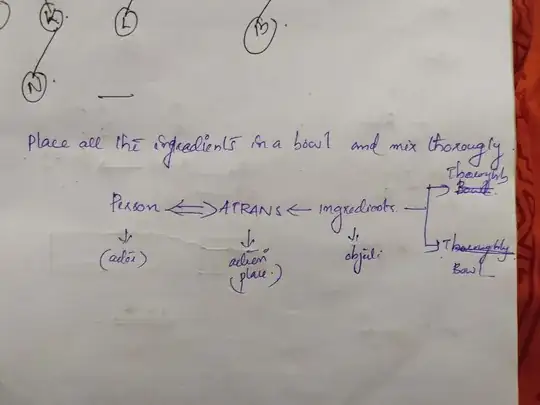 K L B
N
Place all the ingredients in a bowl and mix thorougly.
Thoroughly
Person ⇔ ATRANS ← ingredients Bowl
(actor) action object Thoroughly
(place) Bowl